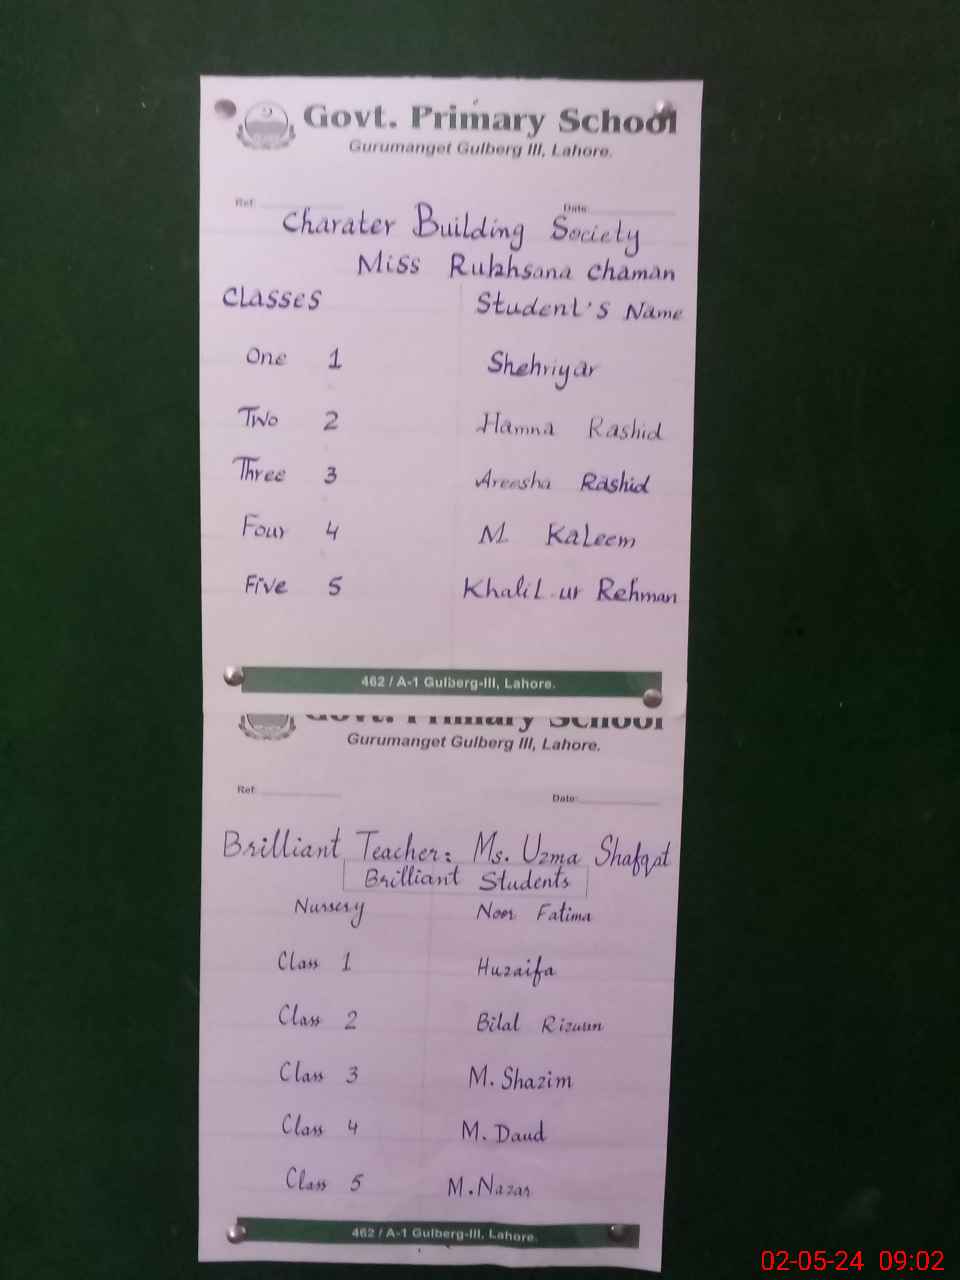 Govt. Primary School
Gurumanget Gulberg III, Lahore.
Ref: Date:
Charater Building Society
Miss Rukhsana chaman
Classes Student's Name
One 1 Shehriyar
Two 2 Hamna Rashid
Three 3 Areesha Rashid
Four 4 M. Kaleem
Five 5 Khalil ur Rehman
462 / A-1 Gulberg-III, Lahore.
Govt. Primary School
Gurumanget Gulberg III, Lahore.
Ref: Date:
Brilliant Teacher: Ms. Uzma Shafqat
Brilliant Students
Nursery Noor Fatima
Class 1 Huzaifa
Class 2 Bilal
Class 3 M. Shazim
Class 4 M. Daud
Class 5 M. Nazar
462 / A-1 Gulberg-III, Lahore.
02-05-24 09:02